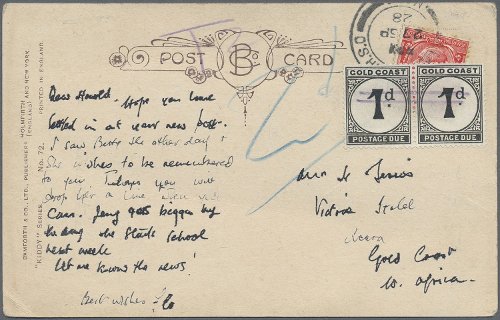 POST CARD
B Co
GOLD COAST
1d
POSTAGE DUE
GOLD COAST
1d
POSTAGE DUE
28
BAMFORTH & CO., LTD., PUBLISHERS, HOLMFIRTH AND NEW YORK
(ENGLAND)
PRINTED IN ENGLAND
"KIDDY" SERIES No. 72.
Dear Harold. Hope you have
settled in at your new post.
I saw Betty the other day &
She wishes to be remembered
to you. Perhaps you will
drop her a line when you
can. Jeny gets bigger by
the day, she starts school
next week
let me know the news!
Best wishes
Victoria Hotel
Accra
Gold Coast
W. Africa.